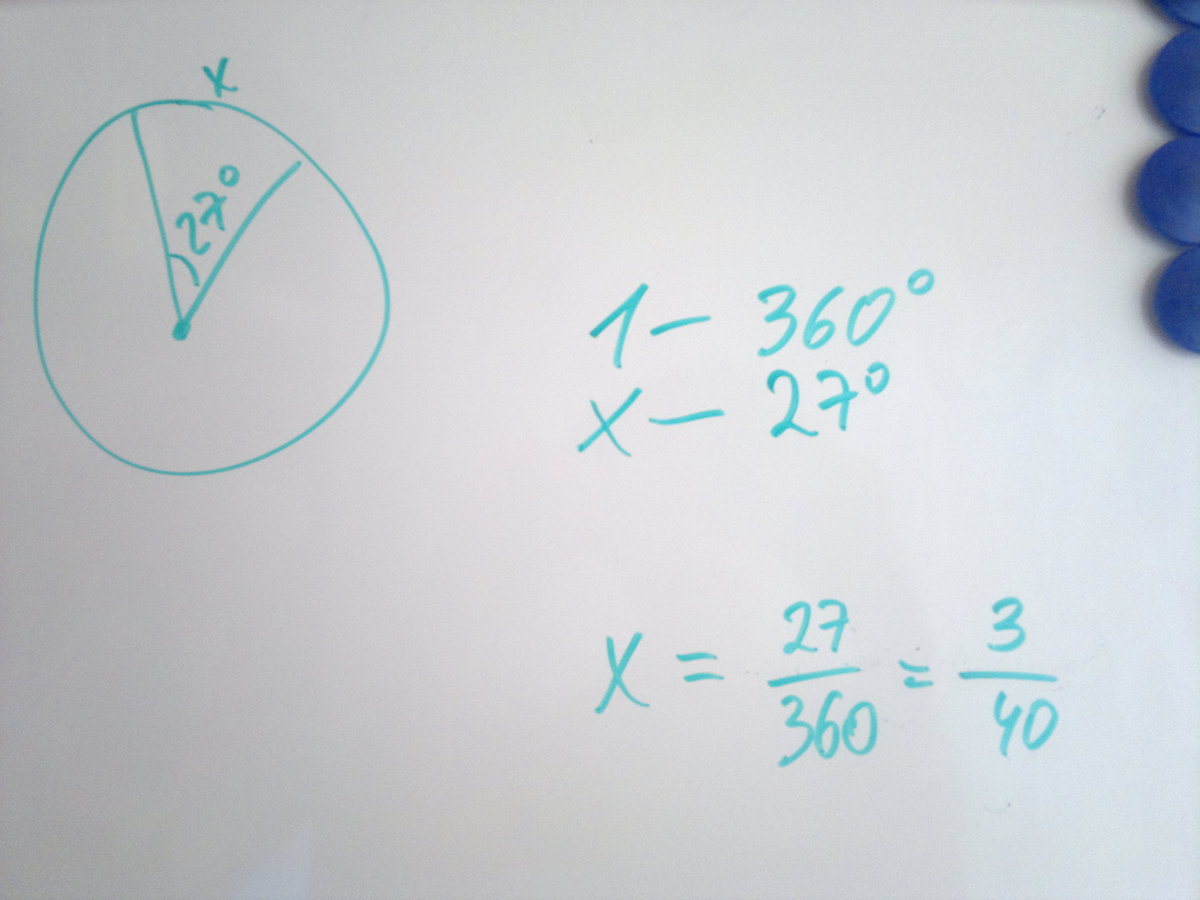 x
27°
1 — 360°
x — 27°
x = 27/360 = 3/40